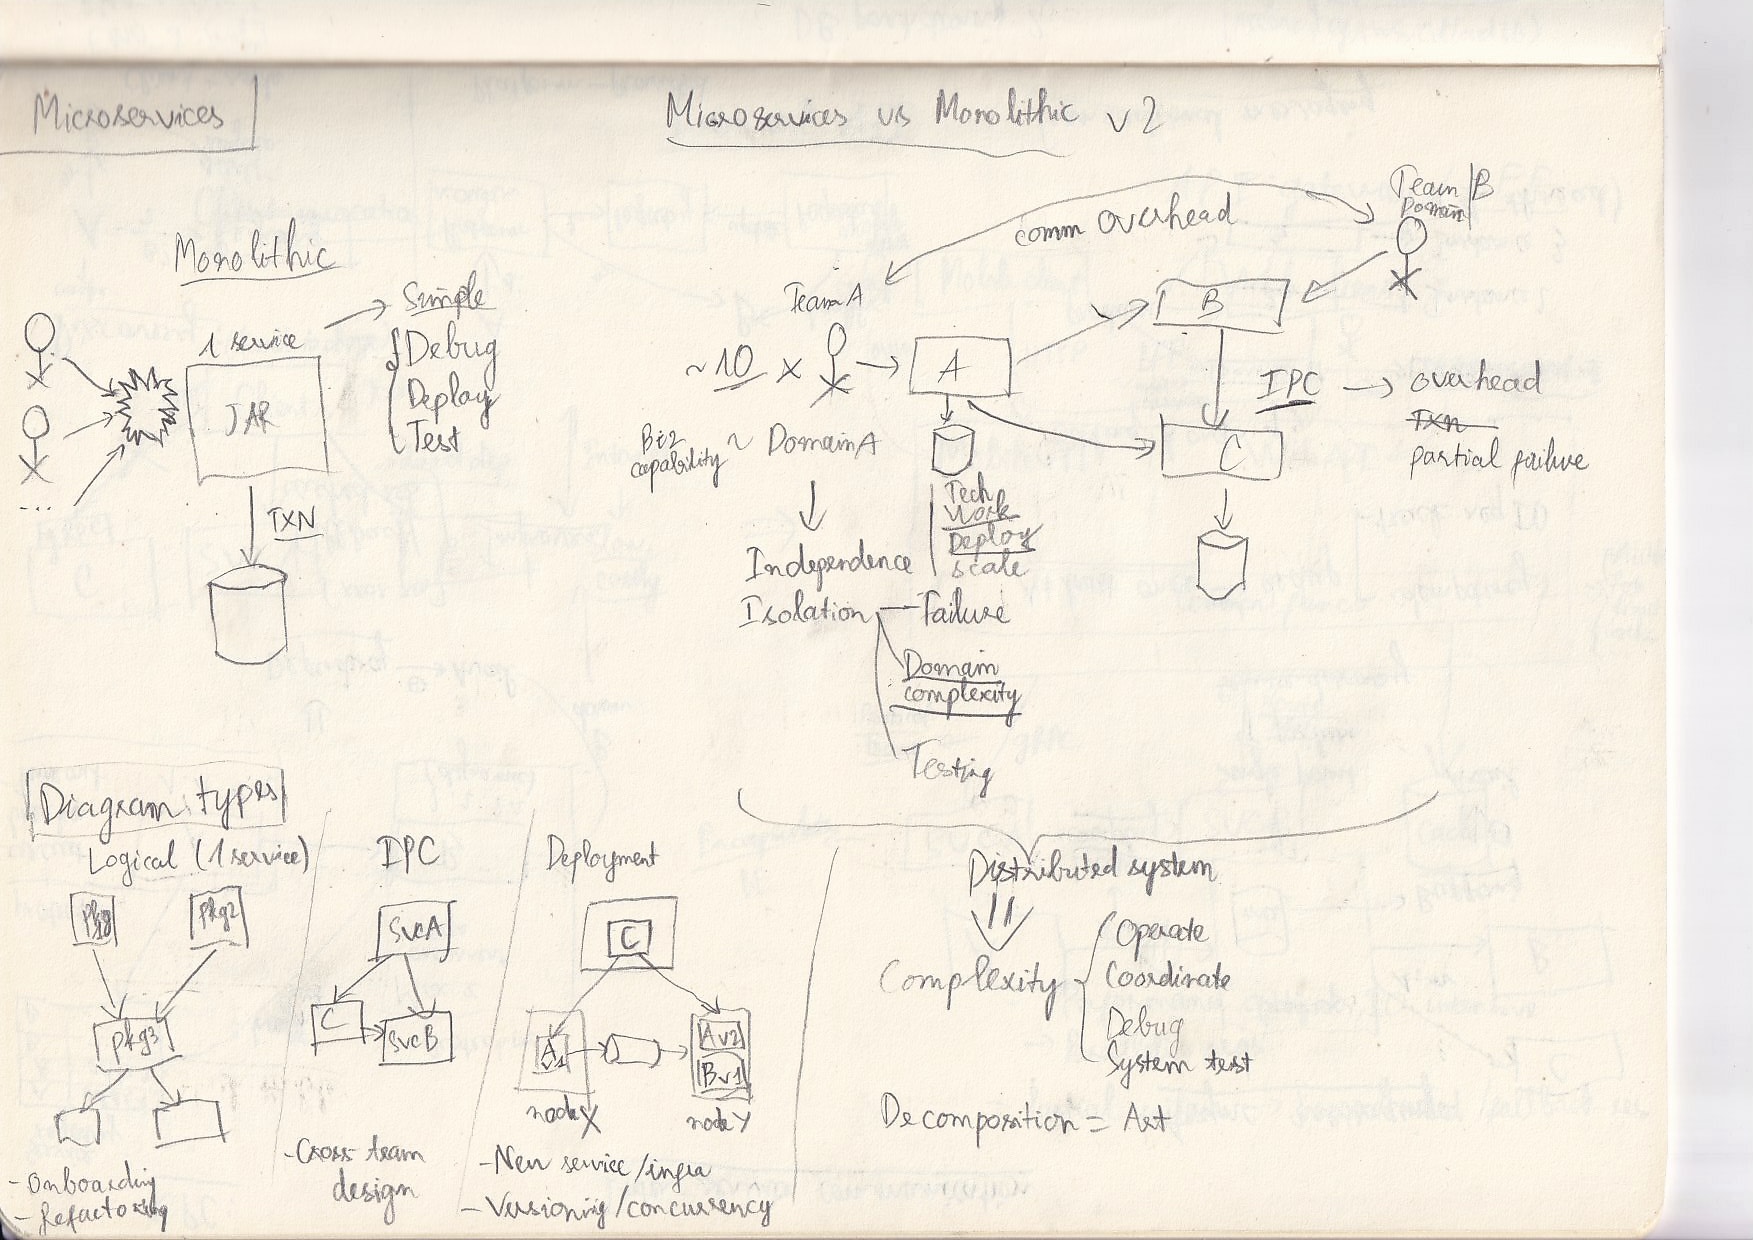 Microservices
Microservices vs Monolithic v2
Monolithic
1 service
JAR
TXN
Simple
Debug
Deploy
Test
...
comm overhead
Team B
Domain
Team A
~10 x
A
B
C
Biz
capability ~ Domain A
IPC → overhead
TXN
partial failure
Tech
Work
Deploy
scale
Independence
Isolation - Failure
Domain
complexity
Testing
Distributed system
Complexity
Operate
Coordinate
Debug
System test
Decomposition = Art
Diagram types
Logical (1 service)
pkg2
pkg3
- Onboarding
- Refactoring
IPC
SvcA
C
SvcB
- Cross team
design
Deployment
C
A
Av2
Bv1
node X
node Y
- New service/infra
- Versioning/concurrency